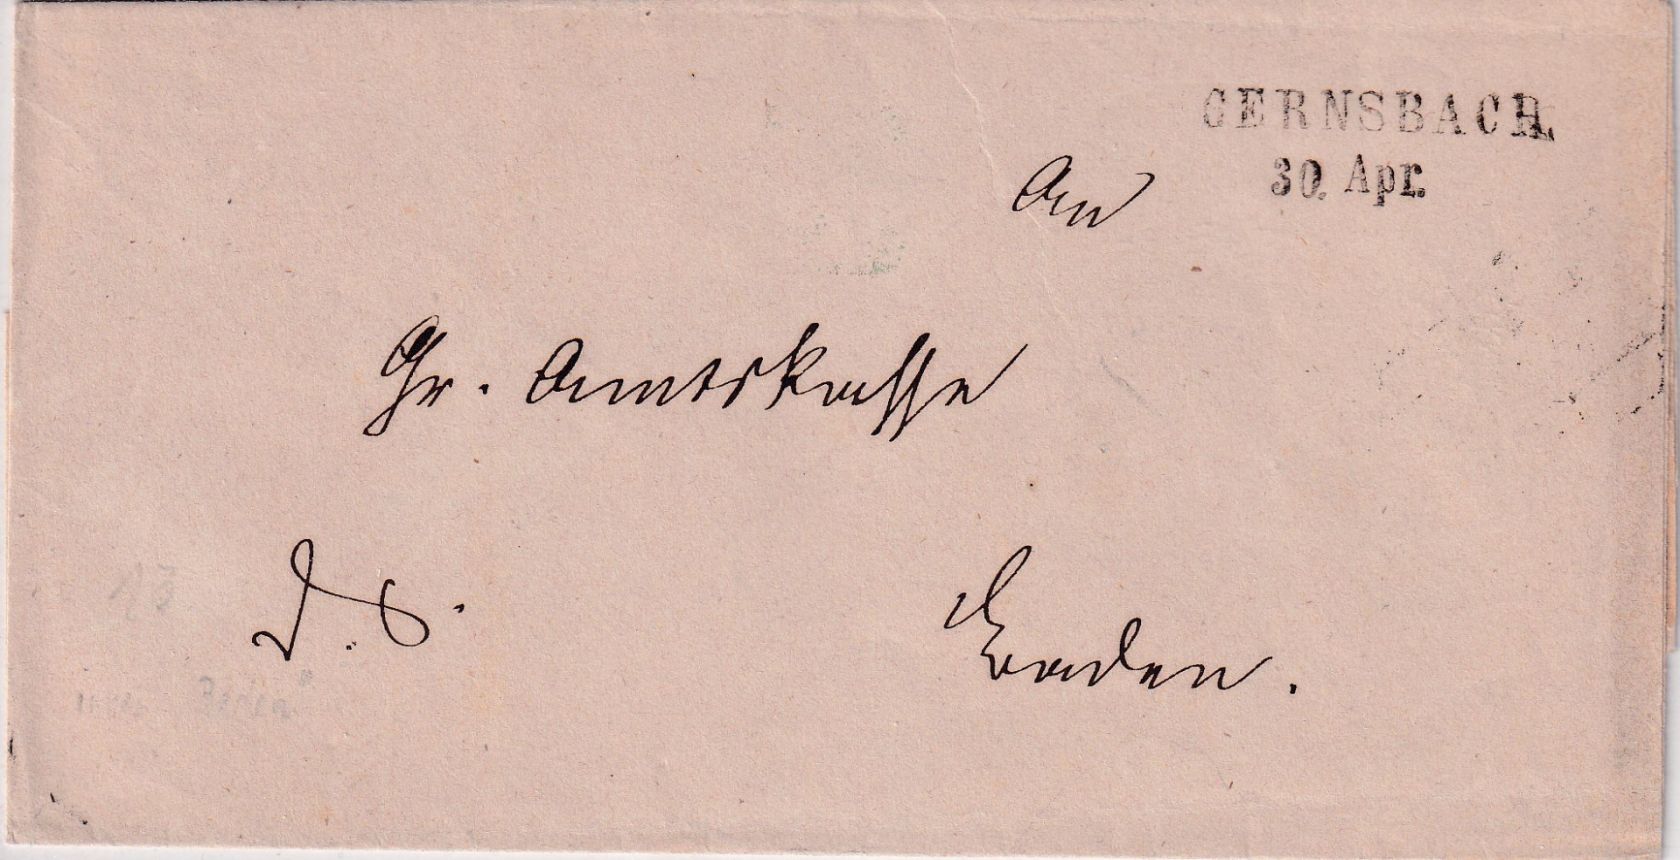 GERNSBACH.
30. Apr.
An
Gr. Amtskasse
D. S.
Baden.